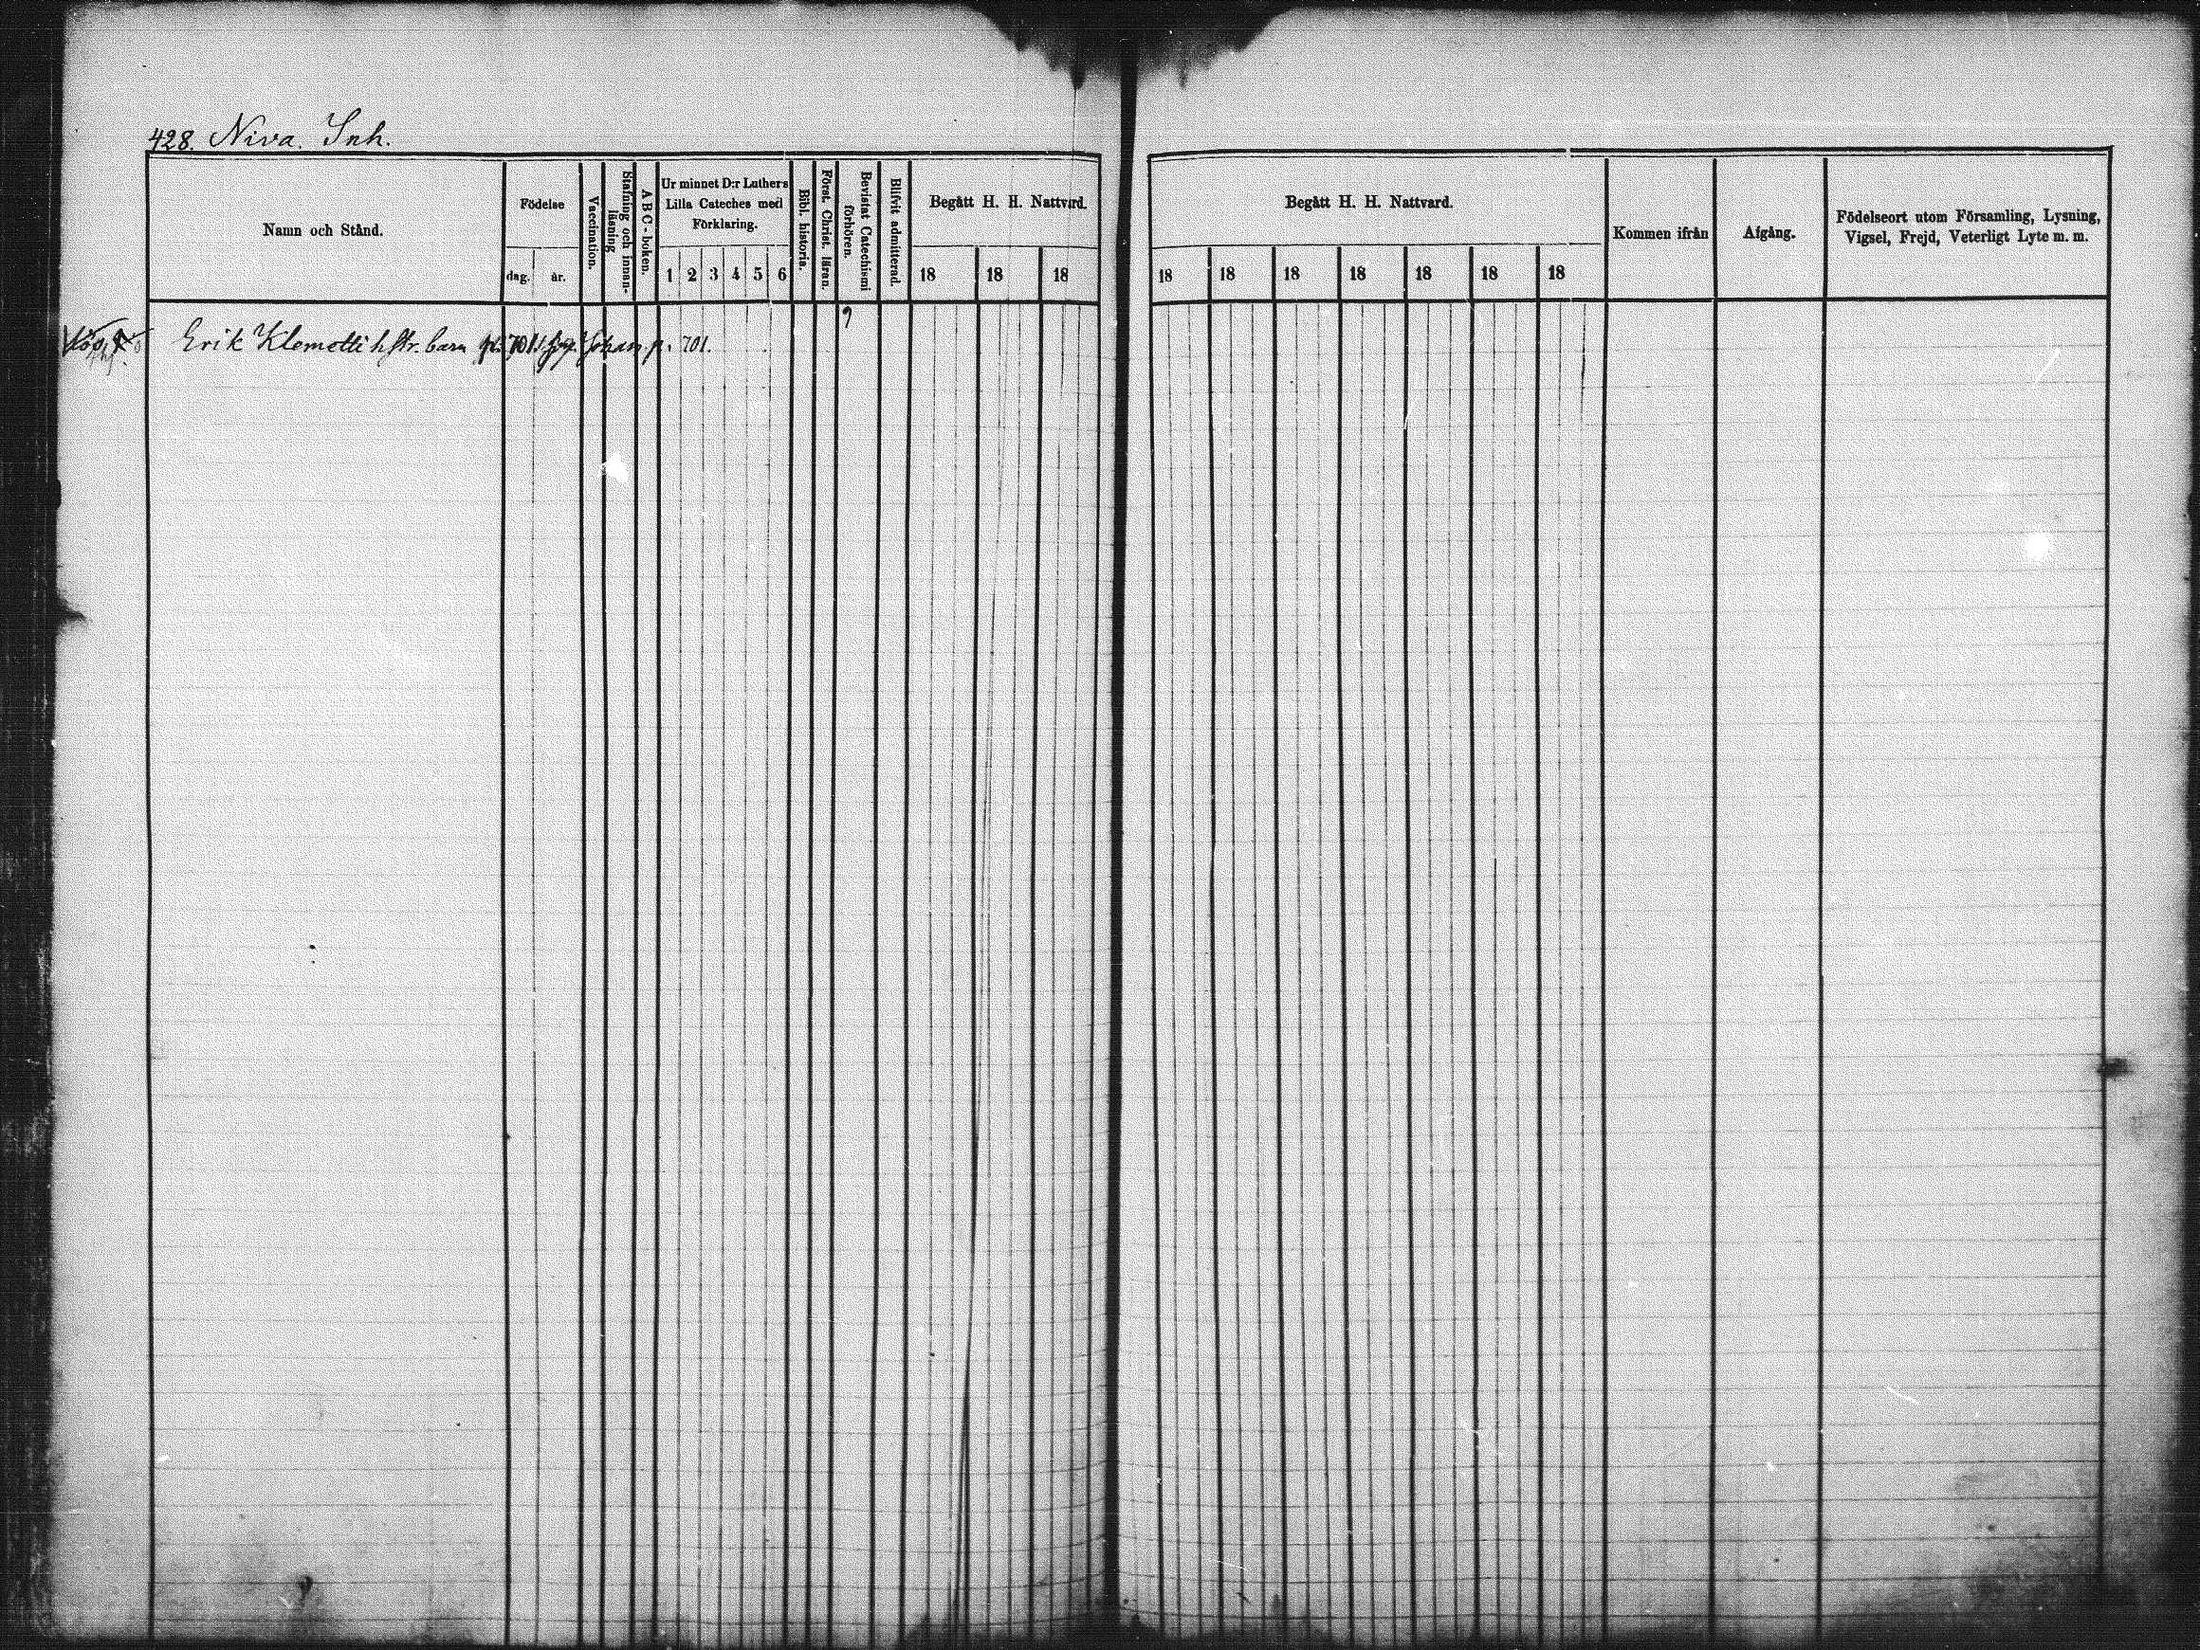 428. Niva. Inh.
Namn och Stånd.
Födelse
dag.
år.
Vaccination.
Stafning och innan-
läsning
ABC-boken.
Ur minnet D:r Luthers
Lilla Cateches med
Förklaring.
1 2 3 4 5 6
Bibl. historia.
Först. Christ. läran.
Bevistat Catechismi
förhören.
Blifvit admitterad.
Begått H. H. Nattvrd.
18 18 18
Begått H. H. Nattvard.
18 18 18 18 18 18 18
Kommen ifrån
Afgång.
Födelseort utom Församling, Lysning,
Vigsel, Frejd, Veterligt Lyte m. m.
Erik Klemetti barn 701. Johan p. 701.